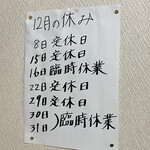 12月の休み
8日定休日
15日定休日
16日臨時休業
22日定休日
29日定休日
30日
31日 〉臨時休業